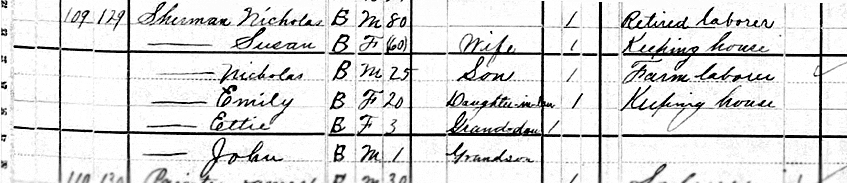 109 129 Sherman Nicholas B M 80 1 Retired laborer
— Susan B F (60) Wife 1 Keeping house
— Nicholas B M 25 Son 1 Farm laborer ✓
— Emily B F 20 Daughter-in-law 1 Keeping house
— Ettie B F 3 Grand-dau 1
— John B M 1 Grandson
110 130 B M 30 1